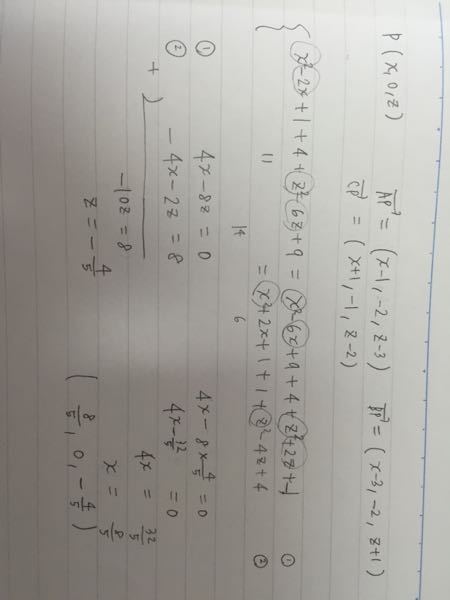 P(x, 0, z)
AP² = (x-1, -2, z-3) BP² = (x-3, -2, z+1)
CP² = (x+1, -1, z-2)
x²-2x+1+4+z²-6z+9 = x²-6x+9+4+z²+2z+1 ①
= x²+2x+1+1+z²-4z+4 ②
14 6
① 4x-8z=0
② -4x-2z=8
+)
-10z=8
z=-4/5
4x-8×4/5=0
4x-32/5=0
4x=32/5
x=8/5
(8/5, 0, -4/5)